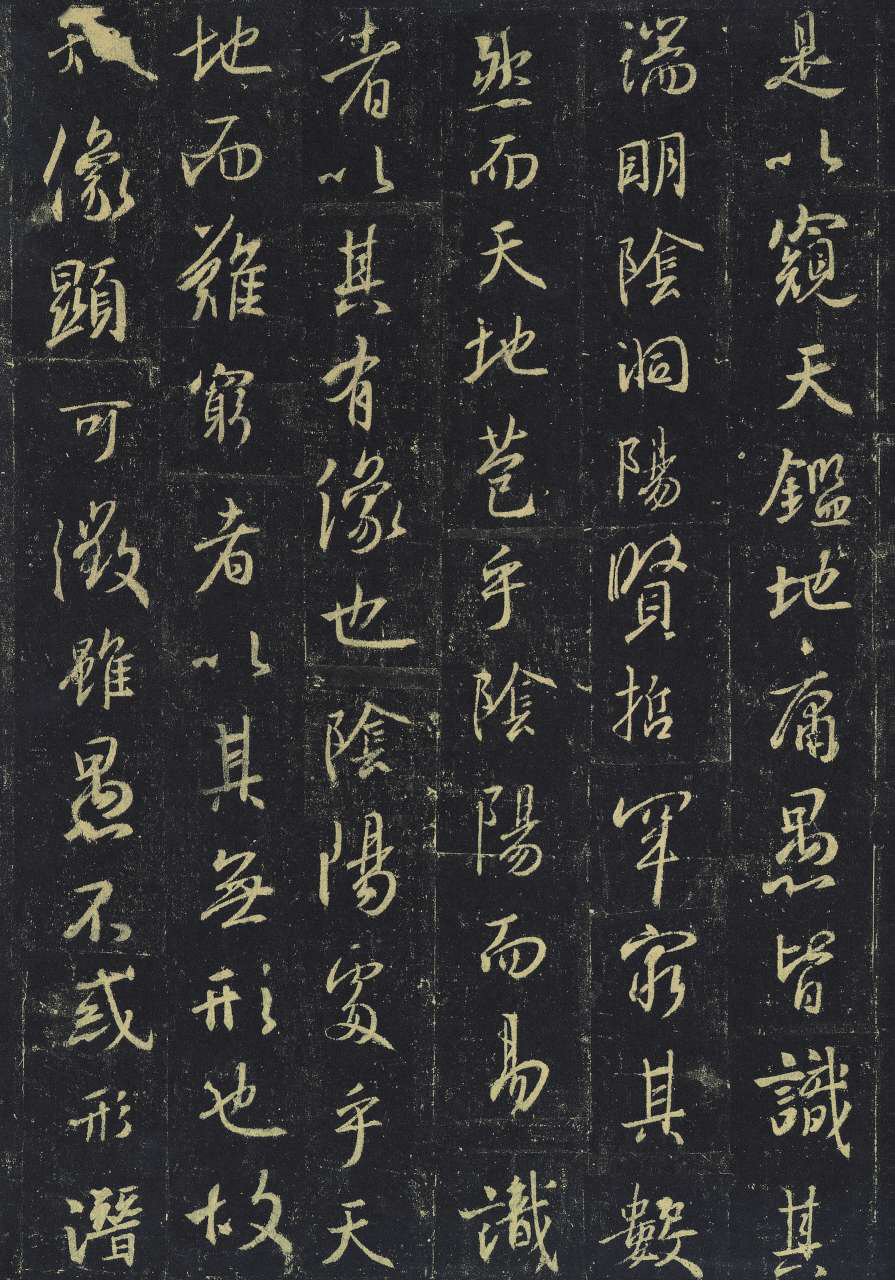 是以窺天鑑地庸愚皆識其
端明陰洞陽賢哲罕窮其數
然而天地苞乎陰陽而易識
者以其有像也陰陽處乎天
地而難窮者以其無形也故
知像顯可徵雖愚不惑形潛